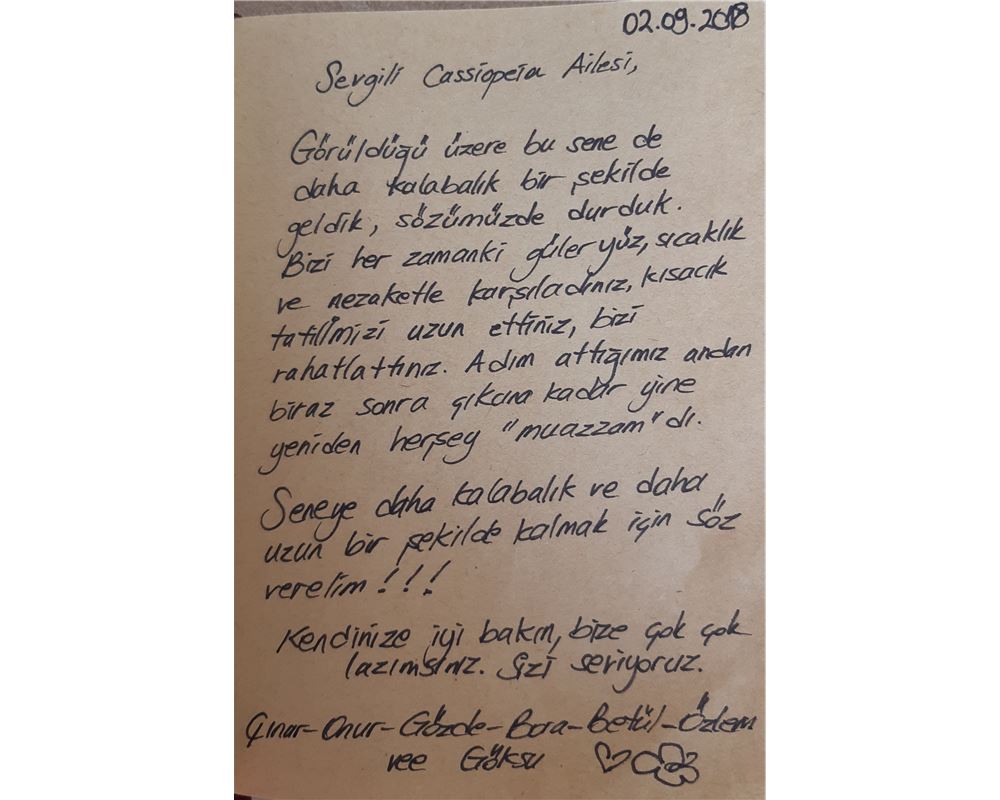 02.09.2018
Sevgili Cassiopeia Ailesi,
Görüldüğü üzere bu sene de
daha kalabalık bir şekilde
geldik, sözümüzde durduk.
Bizi her zamanki güler yüz, sıcaklık
ve nezaketle karşıladınız, kısacık
tatilimizi uzun ettiniz, bizi
rahatlattınız. Adım attığımız andan
biraz sonra çıkana kadar yine
yeniden herşey "muazzam"dı.
Seneye daha kalabalık ve daha
uzun bir şekilde kalmak için söz
verelim!!!
Kendinize iyi bakın, bize çok çok
lazımsınız. Sizi seviyoruz.
Çınar-Onur-Gözde-Bora-Betül-Özlem
vee Göksu